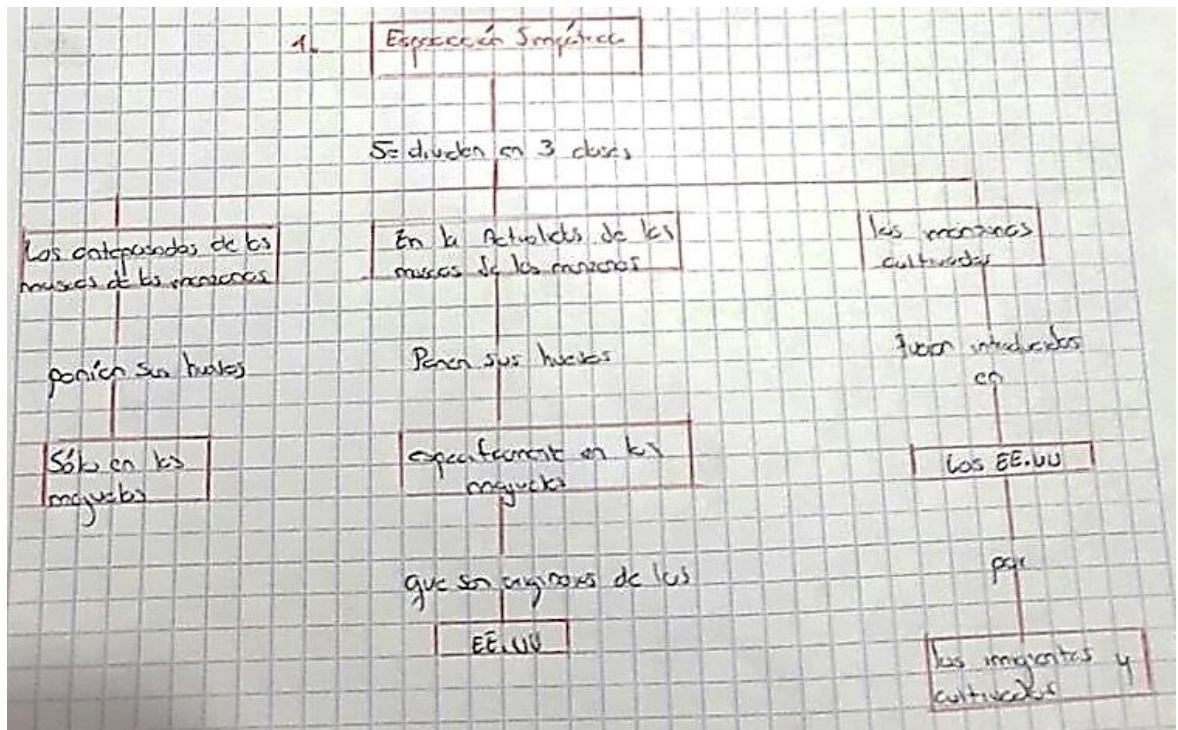 1. Especiación Simpátrica
Se dividen en 3 clases
Los antepasados de las
moscas de las manzanas
ponían sus huevos
Sólo en los
majuelos
En la Actualidad de las
moscas de las manzanas
Ponen sus huevos
específicamente en los
majuelos
que son originales de los
EE.UU
las manzanas
cultivadas
fueron introducidas
en
Los EE.UU
por
los inmigrantes y
cultivados